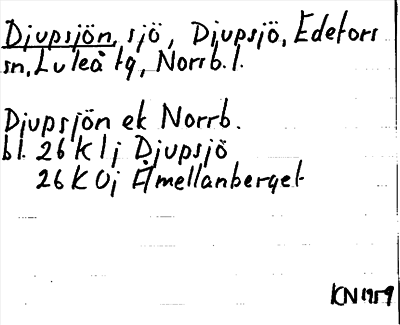 Djupsjön, sjö, Djupsjö, Edefors
sn, Luleå tg, Norrb. l.
Djupsjön ek Norrb.
bl. 26 K 1j Djupsjö
26 K 0j Åmellanberget
KN 1959